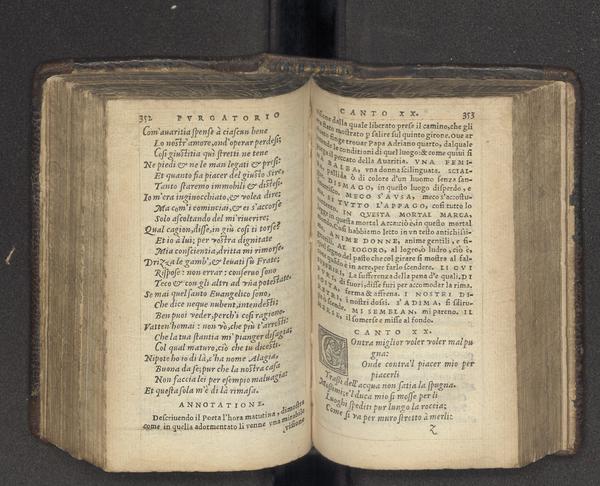 352 PVRGATORIO
Com'auaritia spense à ciascun bene
Lo nostr'amore, ond'operar perdesi;
Cosi giustitia quì stretti ne tene
Ne piedi & ne le man legati & presi:
Et quanto fia piacer del giusto Sire,
Tanto staremo immobili & distesi.
Io m'era inginocchiato, & volea dire;
Ma com'i cominciai, & ei s'accorse
Solo ascoltando del mi riuerire;
Qual cagion, disse, in giù cosi ti torse?
Et io à lui; per vostra dignitate
Mia conscientia, dritta mi rimorse.
Drizza le gamb', & leuati sù Frate;
Rispose: non errar: conseruo sono
Teco & con gli altri ad vna potestate.
Se mai quel santo Euangelico sono,
Che dice neque nubent, intendesti;
Ben puoi veder, perch'i cosi ragiono.
Vatten'homai: non vò, che più t'arresti:
Che la tua stantia mi' pianger disagia;
Col qual maturo, ciò che tu dicesti.
Nipote ho io di là, c'ha nome Alagia,
Buona da se; pur che la nostra casa
Non faccia lei per esempio maluagia:
Et questa sola m'è di là rimasa.
ANNOTATIONE.
Descriuendo il Poeta l'hora matutina, dimostra
come in quella adormentato li venne vna mirabile
visione
CANTO XX. 353
dalla quale liberato prese il camino, che gli
mostrato p salire sul quinto girone. Oue ar
finge trouar Papa Adriano quarto, dalquale
le conditioni di quel luogo: & come quiui si
il peccato della Auaritia. VNA FEMI-
BALBA, vna donna scilinguata. SCIAL-
pallida ò di colore d'un huomo senza san-
DISMAGO, in questo luogo disperdo, e
MECO S'AVSA, meco s'accostu-
TVTTO L'APPAGO, cosi tutto lo
IN QVESTA MORTAL MARCA,
in questa mortal
Cosi habbiamo letto in vn testo antichissi-
ANIME DONNE, anime gentili, e si-
AL LOGORO, al logro, ludro, ciò è,
segno del pasto che col girare si mostra al fal-
in aere, per farlo scendere. LI CVI
La sufferenza della pena d'e quali. DI
di fuori, disse furi per accomodar la rima.
ferma & affrena. I NOSTRI DI-
i nostri dossi. S'ADIMA, si
MI SEMBLAN, mi pareno. IL
il somerse e misse al fondo.
CANTO XX.
COntra miglior voler voler mal pu
gna:
Onde contra'l piacer mio per
piacerli
Trassi dell'acqua non satia la spugna.
Mossimi; e'l duca mio si mosse per li
Luoghi spediti pur lungo la roccia;
Come si va per muro stretto à merli:
Z